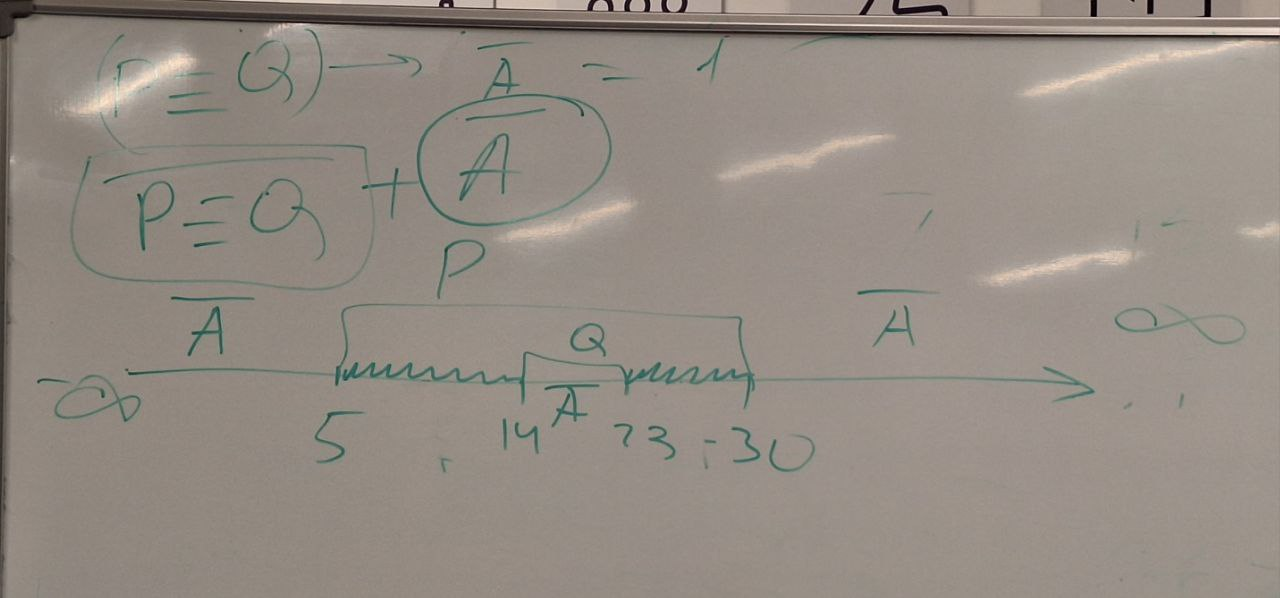 (P ≡ Q) → A̅ = 1
P̅ ̅≡̅ ̅Q̅ + A̅
P
A̅ Q A̅ ∞
-∞ A̅
5 14 23 30